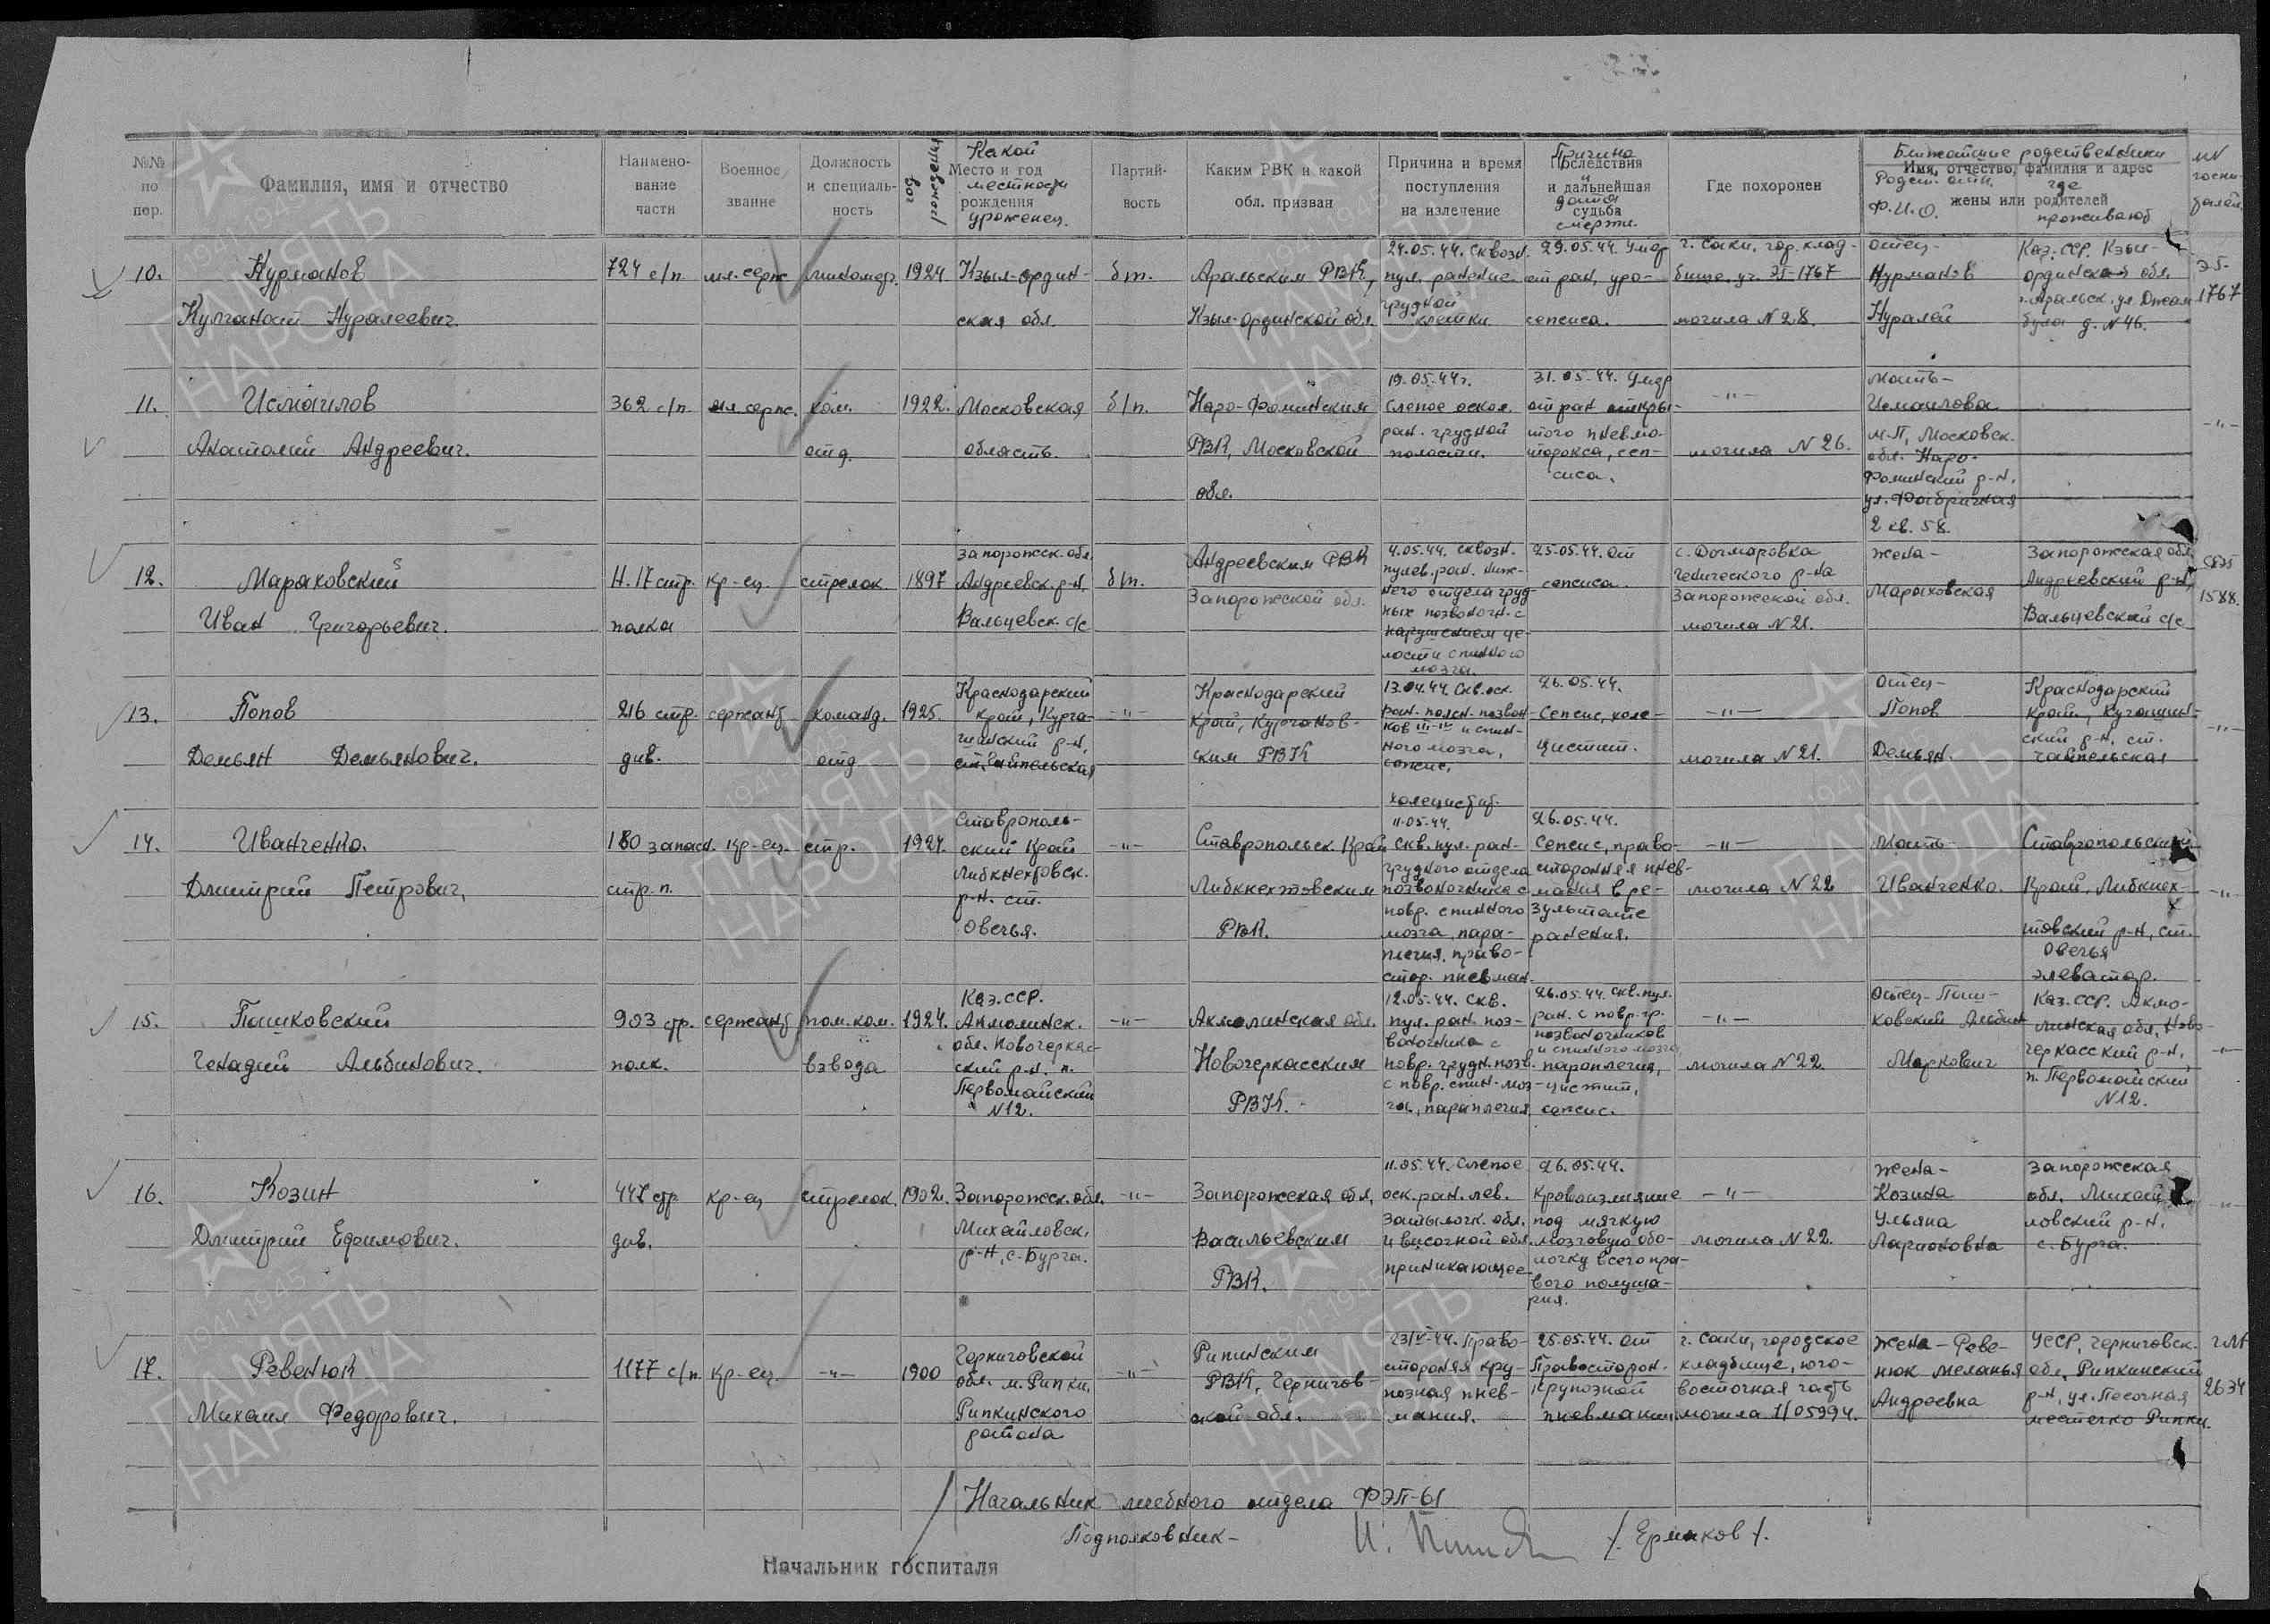 №№ по пер.
Фамилия, имя и отчество
Наимено-
вание
части
Военное
звание
Должность
и специаль-
ность
год
Какой
Место и год
местности
рождения
уроженец.
Партий-
ность
Каким РВК и какой
обл. призван
Причина и время
поступления
на излечение
Причина
Последствия
и
и дальнейшая
дата
судьба
смерти.
Где похоронен
Ближайшие родственники
Имя, отчество, фамилия и адрес
жены или родителей
Ф.И.О.
где
проживают
10.
Нурманов
Кулганай Нуралеевич.
724 с/п
мл. серж.
миномётч.
1924.
Кзыл-ордин-
ская обл.
б/п.
Аральским РВК,
Кзыл-Ординской обл.
24.05.44. Сквозн.
пул. ранение
грудной
клетки
29.05.44. Умер
от ран, уро-
сепсиса.
г. Саки, гор. клад-
бище, уч. ЭГ-1767
могила N 28.
отец-
Нурманов
Нуралей
Каз. ССР. Кзыл-
ординская обл.
г. Аральск. ул. Джам-
була д. N 46.
ЭГ-
1767
11.
Исмаилов
Анатолий Андреевич.
362 с/п.
мл. серж.
ком.
отд.
1922.
Московская
область.
б/п.
Наро-Фоминским
РВК, Московской
обл.
19.05.44г.
Слепое оскол.
ран. грудной
полости.
31.05.44. Умер
от ран откры-
того пневмо-
торокса, сеп-
сиса.
-"-
могила N 26.
мать-
Исмаилова
М.П, Московск.
обл. Наро-
Фоминский р-н,
ул. Фабричная
2 кв. 58.
-"-
12.
Мараховский
Иван Григорьевич.
Н. 17 стр.
полка
кр-ец.
стрелок.
1897
Запорожск. обл.
Андреевск. р-н,
Вальцевск. с/с
б/п.
Андреевским РВК
Запорожской обл.
4.05.44. Сквозн.
пулев. ран. ниж-
него отдела груд-
ных позвоночн. с
нарушением це-
лости спинного
мозга.
25.05.44. От
сепсиса.
с. Догмаровка
Генического р-на
Запорожской обл.
могила N 21.
жена-
Мараховская
Запорожская обл.
Андреевский р-н,
Вальцевский с/с
1588.
13.
Попов
Демьян Демьянович.
216 стр.
див.
сержант
команд.
отд
1925.
Краснодарский
край, Курга-
нинский р-н,
-"-
Краснодарский
край, Курганов-
ским РВК
13.04.44. Скв. оск.
ран. поясн. позвон-
ков III-IV и спин-
ного мозга,
сепсис,
холецистит.
26.05.44.
Сепсис, холе-
цистит.
-"-
могила N 21.
отец-
Попов
Демьян.
Краснодарский
край, Курганин-
ский р-н, ст.
-"-
14.
Иванченко.
Дмитрий Петрович,
180 запасн.
стр. п.
кр-ец.
стр.
1924.
Ставрополь-
ский Край
Либкнехтовск.
р-н. ст.
Овечья.
-"-
Ставропольск. Край
Либкнехтовским
РВК.
11.05.44.
Скв. пул. ран-
грудного отдела
позвоночника с
повр. спинного
мозга, пара-
плегия, право-
стор. пневман.
26.05.44.
Сепсис, право-
сторонняя пнев-
мания в ре-
зультате
ранения.
-"-
могила N 22
мать
Иванченко.
Ставропольский
Край, Либкнех-
товский р-н, ст.
Овечья
элеватор.
-"-
15.
Пашковский
Генадий Альбинович.
903 стр.
полк.
сержант
пом. ком.
взвода
1924.
Каз. ССР.
Акмолинск.
обл. Новочеркас-
ский р-н. п.
Первомайский
N 12.
-"-
Акмолинская обл.
Новочеркасским
РВК.
12.05.44. Скв.
пул. ран. поз-
воночника с
повр. грудн. позв.
с повр. спин-моз-
га, параплегия
26.05.44. Скв. пул.
ран. с повр. гр.
позвоночников
и спинного мозга,
параплегия,
цистит,
сепсис.
-"-
могила N 22.
Отец-Паш-
ковский Альбин
Маркович
Каз. ССР. Акмо-
линская обл, Ново-
черкасский р-н,
п. Первомайский
N 12.
-"-
16.
Козин
Дмитрий Ефимович.
447 стр
див.
кр-ец
стрелок.
1902.
Запорожск. обл.
Михайловск.
р-н, с. Бурча.
-"-
Запорожская обл,
Васильевским
РВК.
11.05.44. Слепое
оск. ран. лев.
затылочк. обл.
и височной обл.
приникающее
26.05.44.
Кровоизлияние
под мягкую
мозговую обо-
лочку всего пра-
вого полуша-
рия.
-"-
могила N 22.
жена-
Козина
Ульяна
Ларионовна
Запорожская
обл. Михай-
ловский р-н.
с. Бурча.
-"-
17.
Ревенюк
Михаил Федорович.
1177 с/п.
кр-ец.
-"-
1900
Черниговской
обл. м. Рипки,
Рипкинского
района
-"-
Рипинским
РВК, Чернигов-
ской обл.
23/IV-44. Право-
стороняя кру-
позная пнев-
мания.
25.05.44. От
Правосторон.
крупозной
пневмании.
г. Саки, городское
кладбище, юго-
восточная часть
могила 1/05994.
жена-Реве-
нюк Меланья
Андреевна
УССР, Черниговск.
обл, Рипкинский
р-н, ул. Песочная
местечко Рипки.
2634
Начальник учебного отдела ФЭП-61
Подполковник-
/. Ермаков /.
Начальник госпиталя
1941-1945
ПАМЯТЬ
НАРОДА